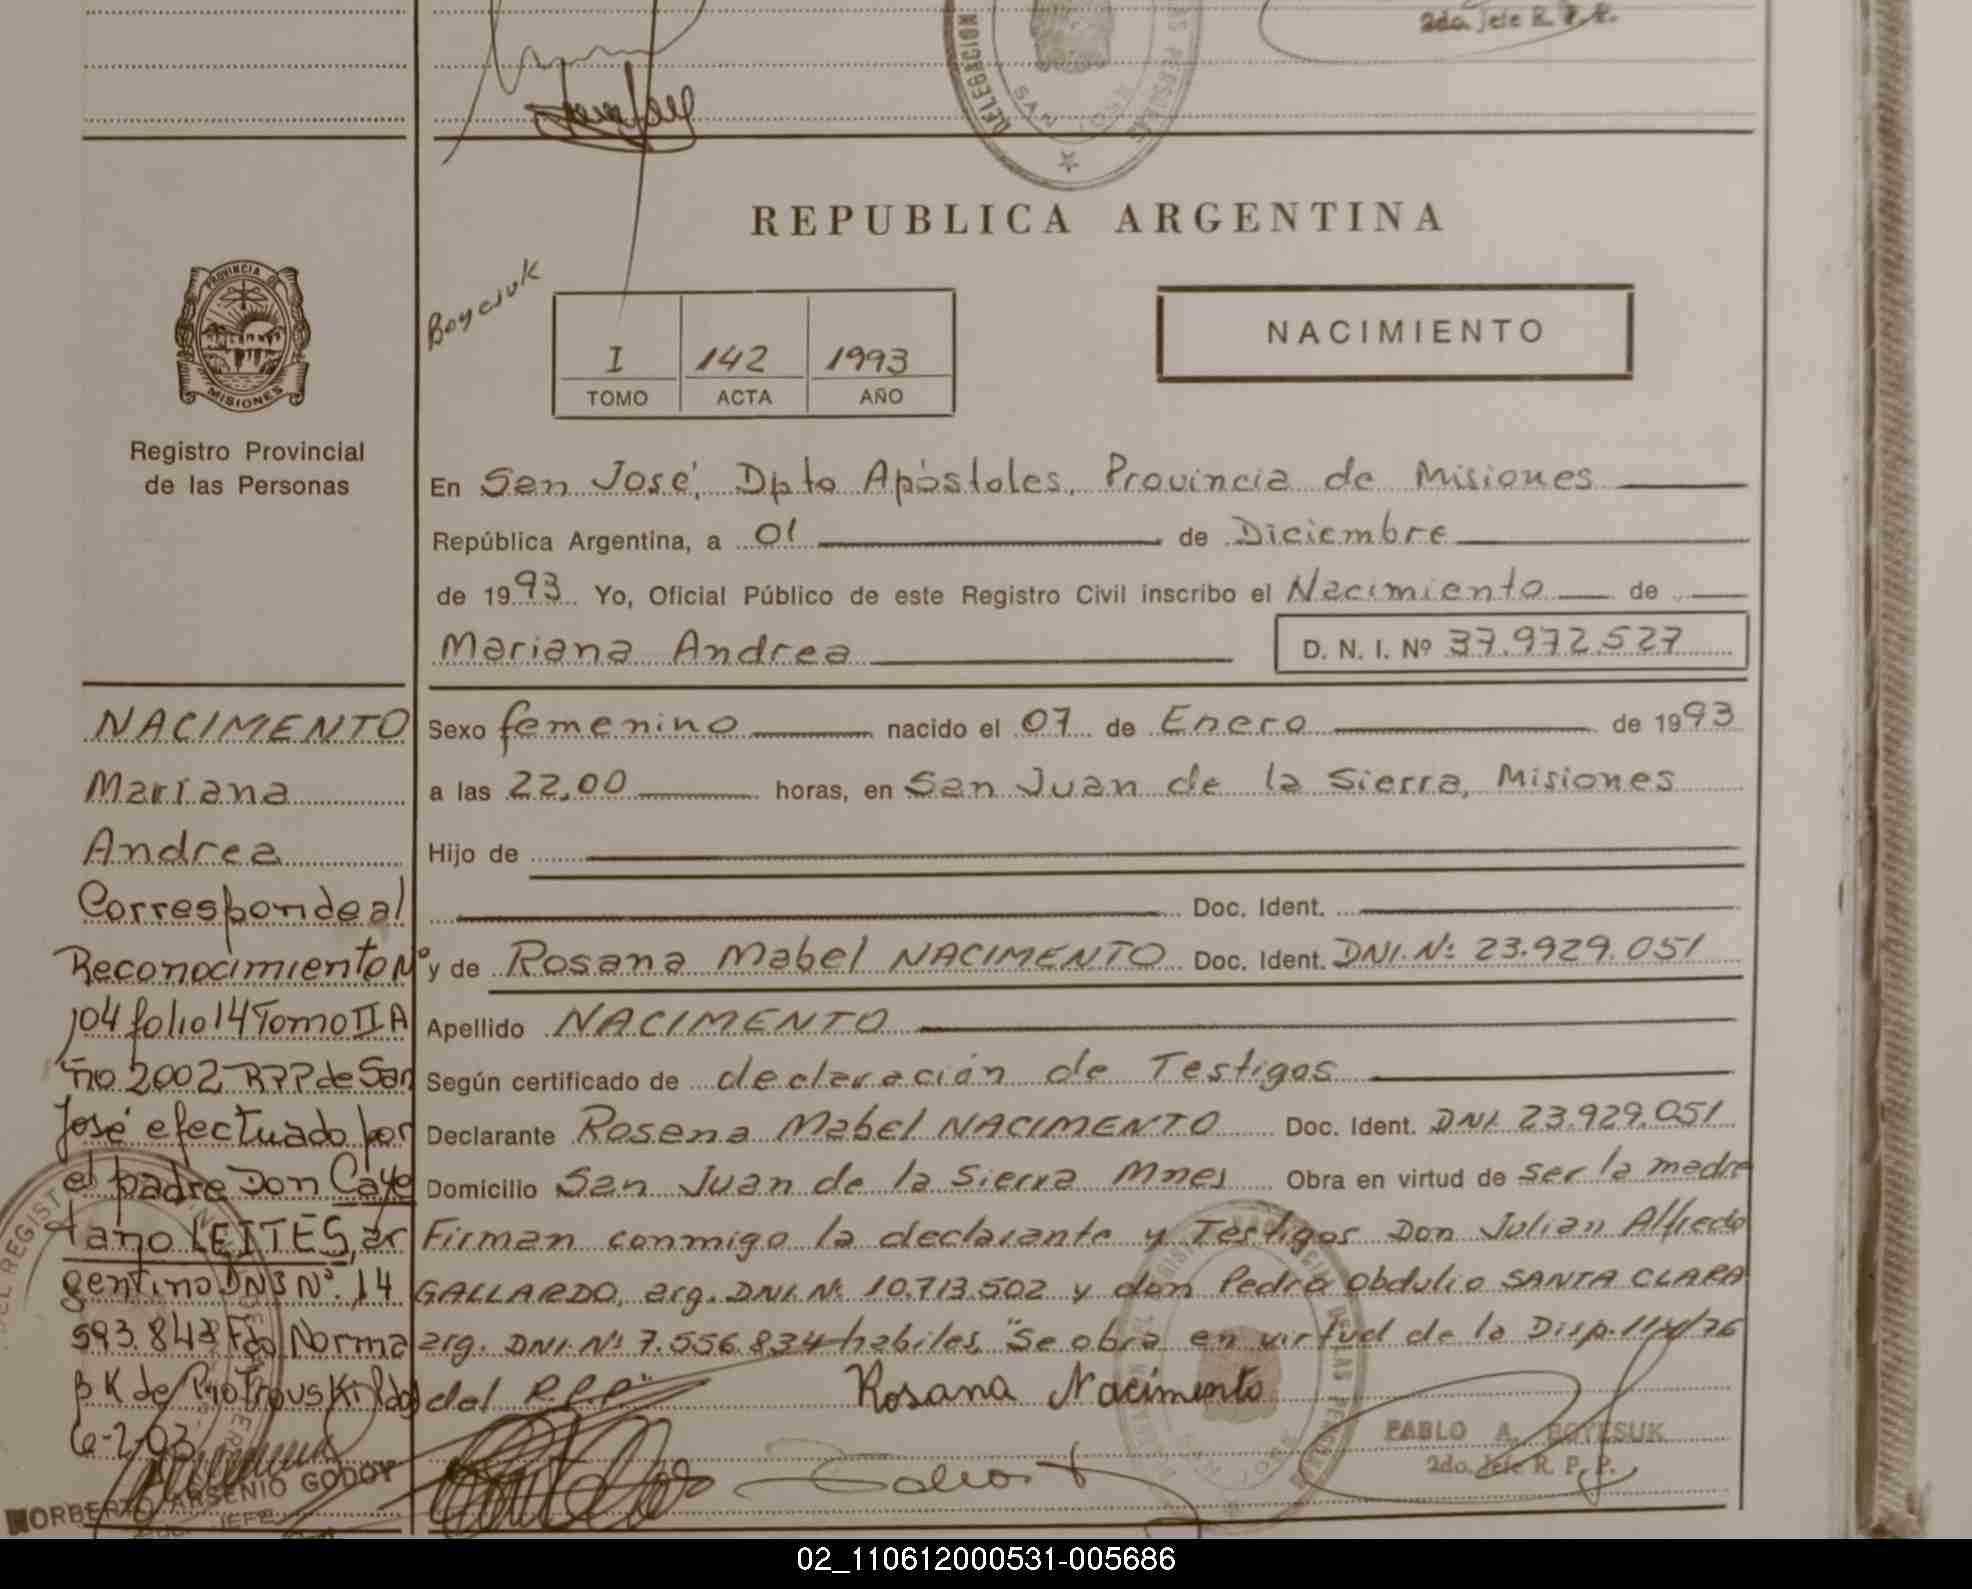 2do. Jefe R. P. P.
DELEGACION
SAN JOSE
REPUBLICA ARGENTINA
Boyesuk
PROVINCIA DE
MISIONES
I 142 1993
TOMO ACTA AÑO
NACIMIENTO
Registro Provincial
de las Personas
En San José, Dpto Apóstoles, Provincia de Misiones
República Argentina, a 01 de Diciembre
de 1993 Yo, Oficial Público de este Registro Civil inscribo el Nacimiento de
Mariana Andrea D. N. I. Nº 37.972.527
Sexo femenino nacido el 07 de Enero de 1993
a las 22,00 horas, en San Juan de la Sierra, Misiones
Hijo de
Doc. Ident.
y de Rosana Mabel NACIMENTO Doc. Ident. DNI. Nº 23.929.051
Apellido NACIMENTO
Según certificado de declaración de Testigos
Declarante Rosana Mabel NACIMENTO Doc. Ident. DNI. 23.929.051
Domicilio San Juan de la Sierra Mnes Obra en virtud de ser la madre
Firman conmigo la declarante y Testigos Don Julian Alfredo
GALLARDO, arg. DNI. Nº 10.713.502 y don Pedro Obdulio SANTA CLARA
arg. DNI. Nº 7.556.834 habiles, "Se obra en virtud de la Disp.
del R.P.P."
Rosana Nacimento
PABLO A. BOYESUK
2do. Jefe R. P. P.
NACIMENTO
Mariana
Andrea
Corresponde al
Reconocimiento Nº
104 folio 14 Tomo II A
ño 2002 RPP de San
José efectuado por
el padre Don Caye
tano LEITES, ar
gentino DNI Nº. 14
593.848 Fdo Norma
B K de Piotrouski
6-2-03
NORBERTO ARSENIO GODOY
JEFE
02_110612000531-005686